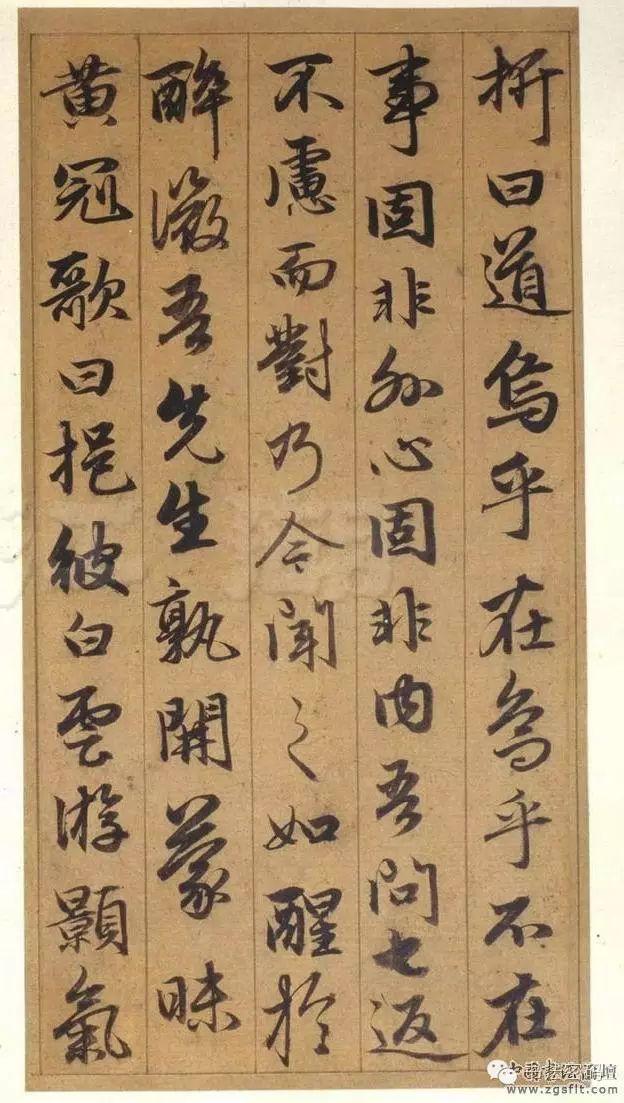 折曰道焉乎在焉乎不在
事固非外心固非内吾問七返
不慮而對乃今聞之如醒於
醉微吾先生孰開蒙昧
黃冠歌曰挹彼白雲游顥氣
www.zgsflt.com